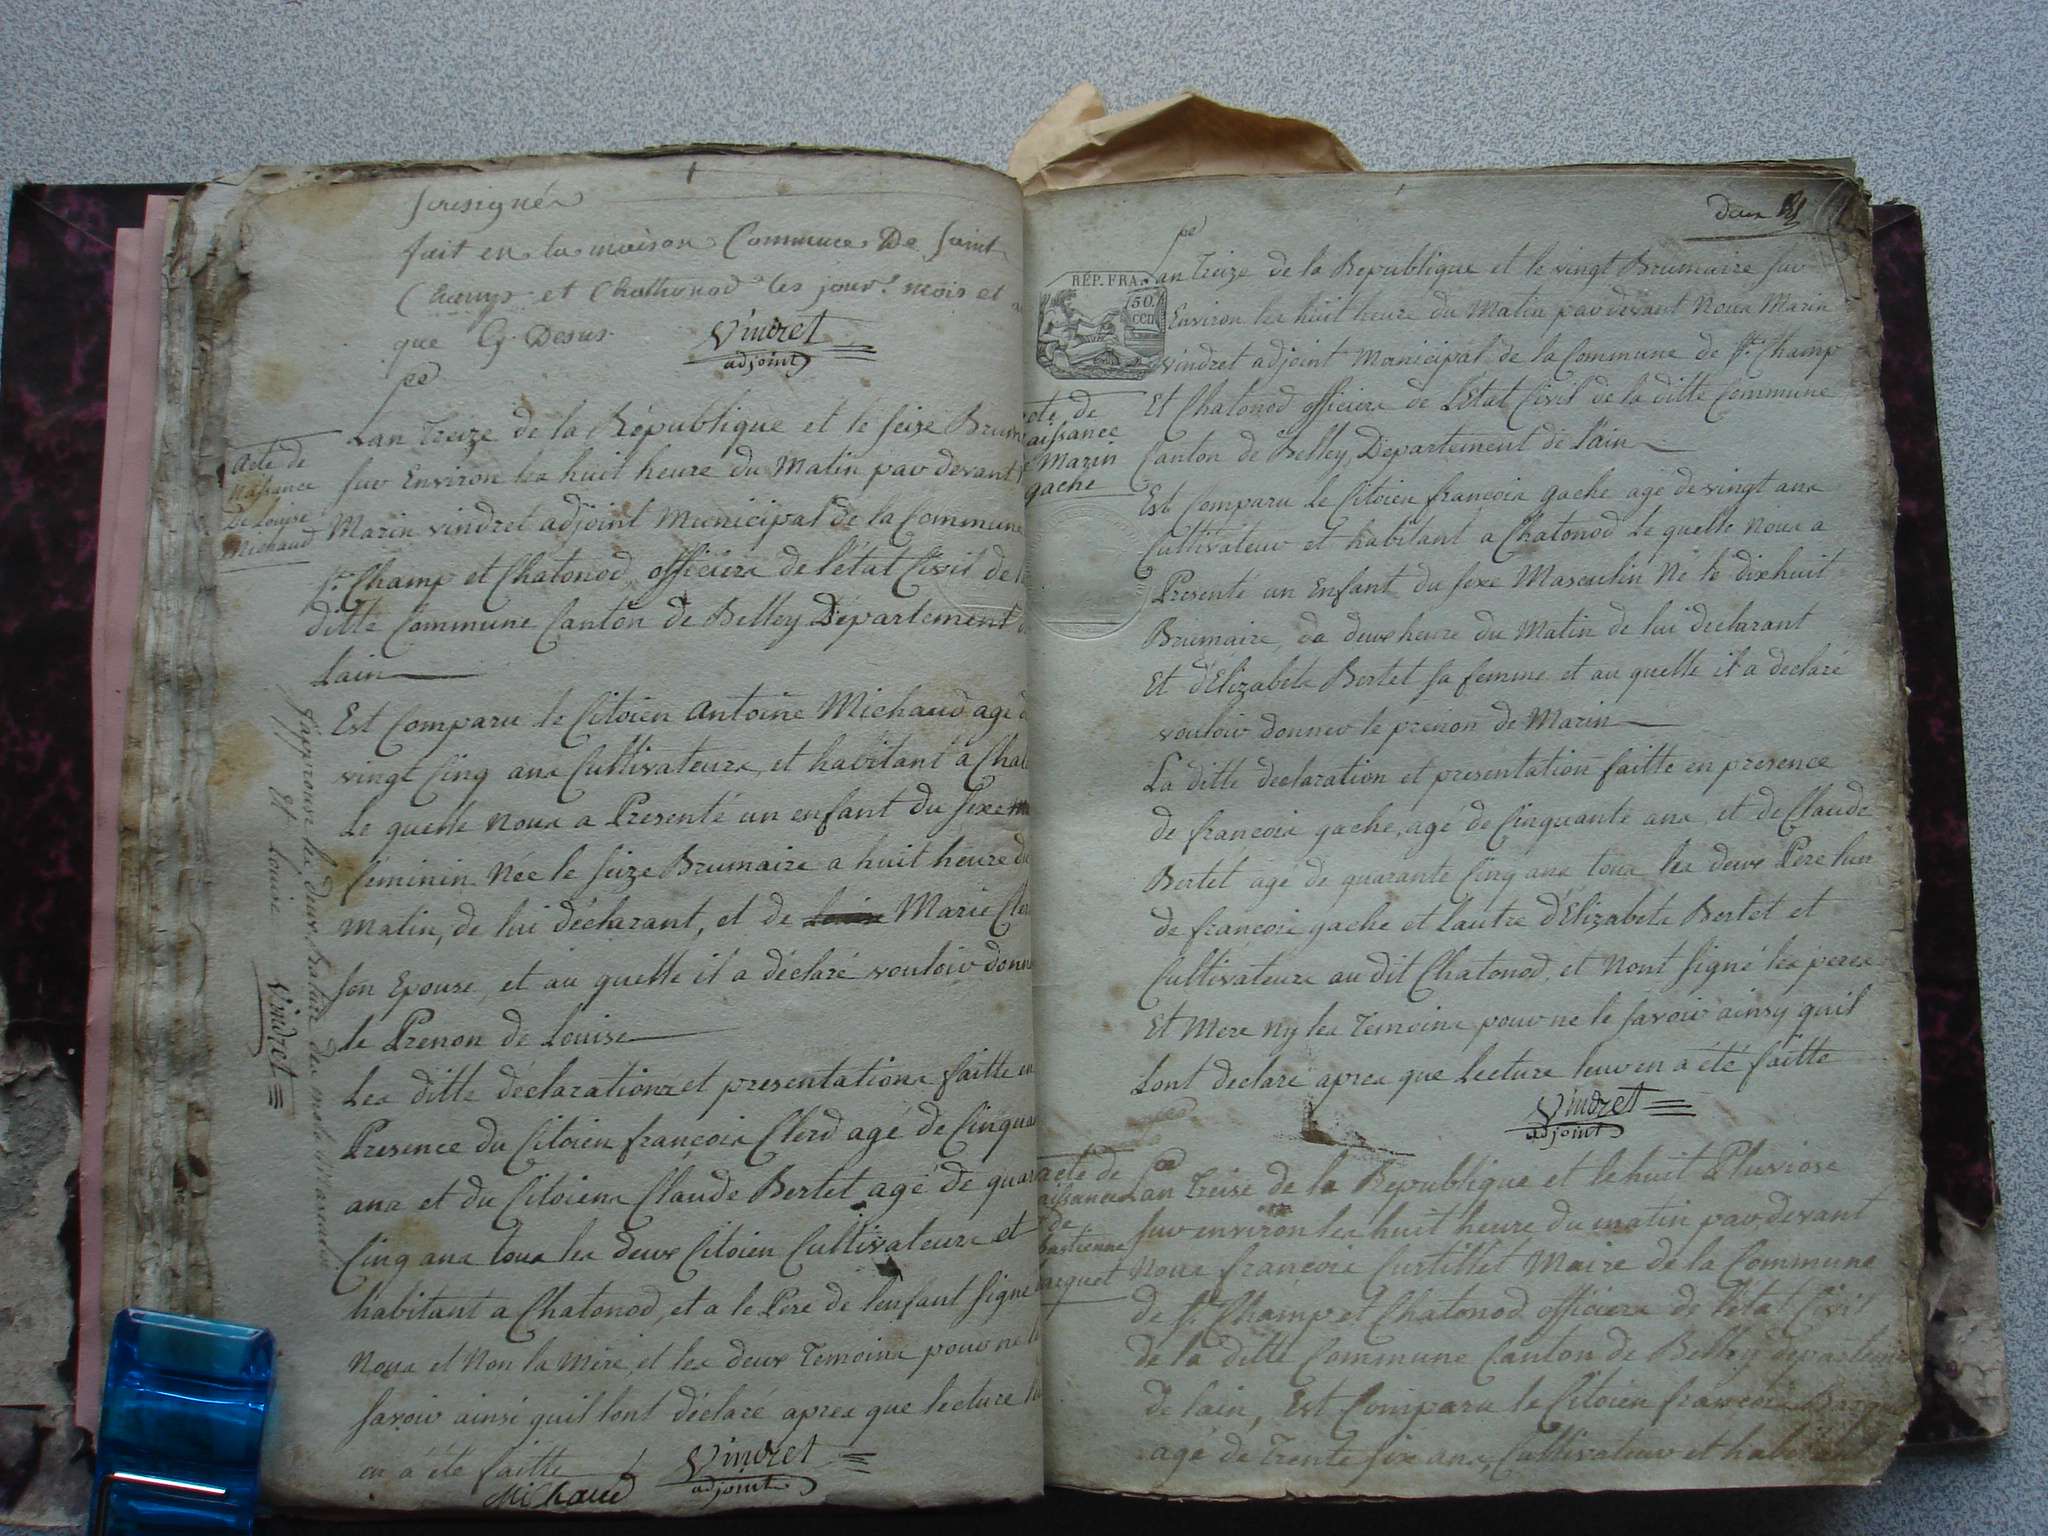 soussignés
fait en la maison Commune De saint
Champ et Chathonod les jour mois et
que Cy Desus
Vindret
adjoint
acte de
Naissance
De Louise
Michaud
Lan Treize de la République et le seise Brum
sur Environ les huit heure du Matin par devant
Marin vindret adjoint Municipal de la Commune
St. Champ et Chatonod, officiers de l'état Civil de l
ditte Commune Canton de Belley Département d
Lain
Est Comparu le Citoien Antoine Michaud agé d
vingt Cinq ans Cultivateurs, et habitant à Chat
Le quelle nous a Presenté un enfant du sexe
féminin Née le seize Brumaire a huit heure du
Matin, de lui déclarant, et de Marie Cler
son Epouse, et au quelle il a déclaré vouloir donn
le Prenon de Louise
Les ditte déclarations et presentations faitte en
Presence du Citoien françois Clerd agé de Cinqua
ans et du Citoiens Claude Bertet agé de quara
Cinq ans tous les deux Citoien Cultivateurs et
habitant a Chatonod, et a le Pere de lenfant signé
Nous et Non la Mère, et les deux Temoins pour ne le
savoir ainsi quil lont déclaré apres que lecture
en a été faitte
Vindret
adjoint
Michaud
J'approuve les deux rature des mots Masculin
Et Louise
Vindret
deux
RÉP. FRA.
50
cen
Lan Treize de la Republique et le vingt Brumaire sur
Environ les huit heure du Matin par devant Nous Marin
vindret adjoint Municipal de la Commune de St. Champ
Et Chatonod officiers de L'état Civil de la ditte Commune
Canton de Belley, Departement de l'ain
acte de
aissance
Marin
gache
Est Comparu le Citoien françois gache agé de vingt ans
Cultivateur et habitant a Chatonod Le quelle nous a
Presenté un Enfant du sexe Masculin Né le dixhuit
Brumaire, a deux heure du Matin de lui declarant
Et d'Elizabete Bertet sa femme et au quelle il a declaré
vouloir donner le prenon de Marin
La ditte declaration et presentation faitte en presence
de françois gache, agé de Cinquante ans, et de Claude
Bertet agé de quarante Cinq ans tous les deux Pere lun
de françois gache et lautre d'Elizabete Bertet et
Cultivateurs au dit Chatonod, et Nont signé les peres
Et Mere ny les Temoins pour ne le savoir ainsy quil
Lont declaré apres que Lecture leur en a été faitte
Vindret
adjoint
acte de
aissance
de
bastienne
acquet
Lan Treise de la Republique et le huit Pluviose
sur environ les huit heure du matin par devant
nous françois Curtillet Maire de la Commune
de St. Champ et Chatonod officiers de l'état Civil
de la ditte Commune Canton de Belley departeme
de lain, Est Comparu le Citoien françois
agé de Trente six ans, Cultivateur et habitant